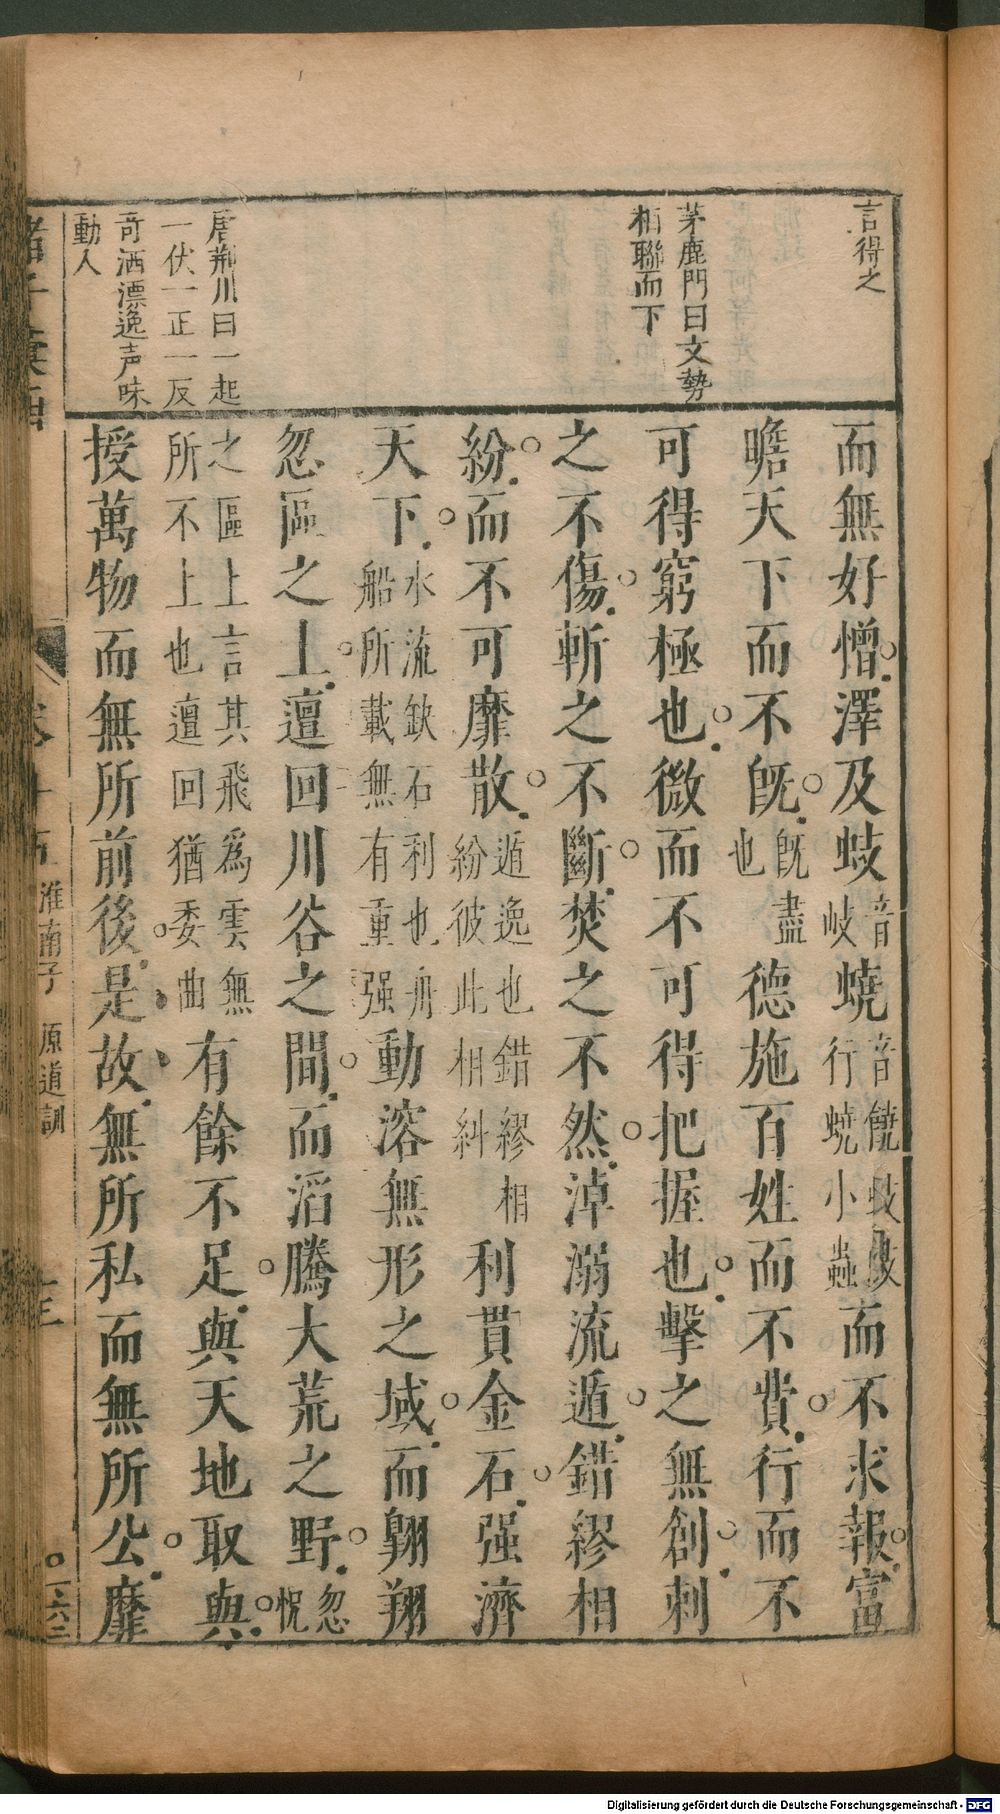 言得之
茅鹿門曰文勢
相聯而下
唐荆川曰一起
一伏一正一反
奇洒漂逸声味
動人
而無好憎澤及蚑音岐蟯音饒蚑蚑行蟯小蟲而不求報富
瞻天下而不既既盡也德施百姓而不費行而不
可得窮極也微而不可得把握也擊之無創刺
之不傷斬之不斷焚之不然淖溺流遁錯繆相
紛而不可靡散遁逸也錯繆相紛彼此相糾利貫金石强濟
天下水流缺石利也舟船所載無有重强動溶無形之域而翱翔
忽區之上邅回川谷之間而滔騰大荒之野忽怳
之區上言其飛爲雲無所不上也邅回猶委曲有餘不足與天地取與
授萬物而無所前後是故無所私而無所公靡
淮南子 原道訓
Digitalisierung gefördert durch die Deutsche Forschungsgemeinschaft - DFG